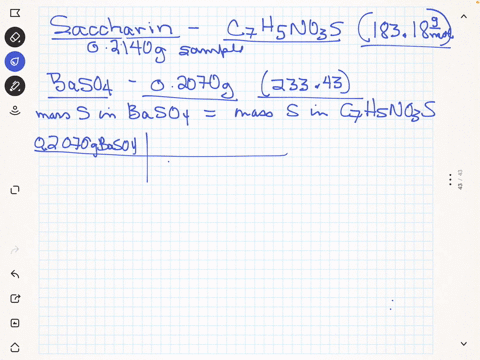 Saccharin - C7H5NO3S (183.18 g/mol)
0.2140g sample
BaSO4 - 0.2070g (233.43)
mass S in BaSO4 = mass S in C7H5NO3S
0.2070gBaSO4
43 / 43